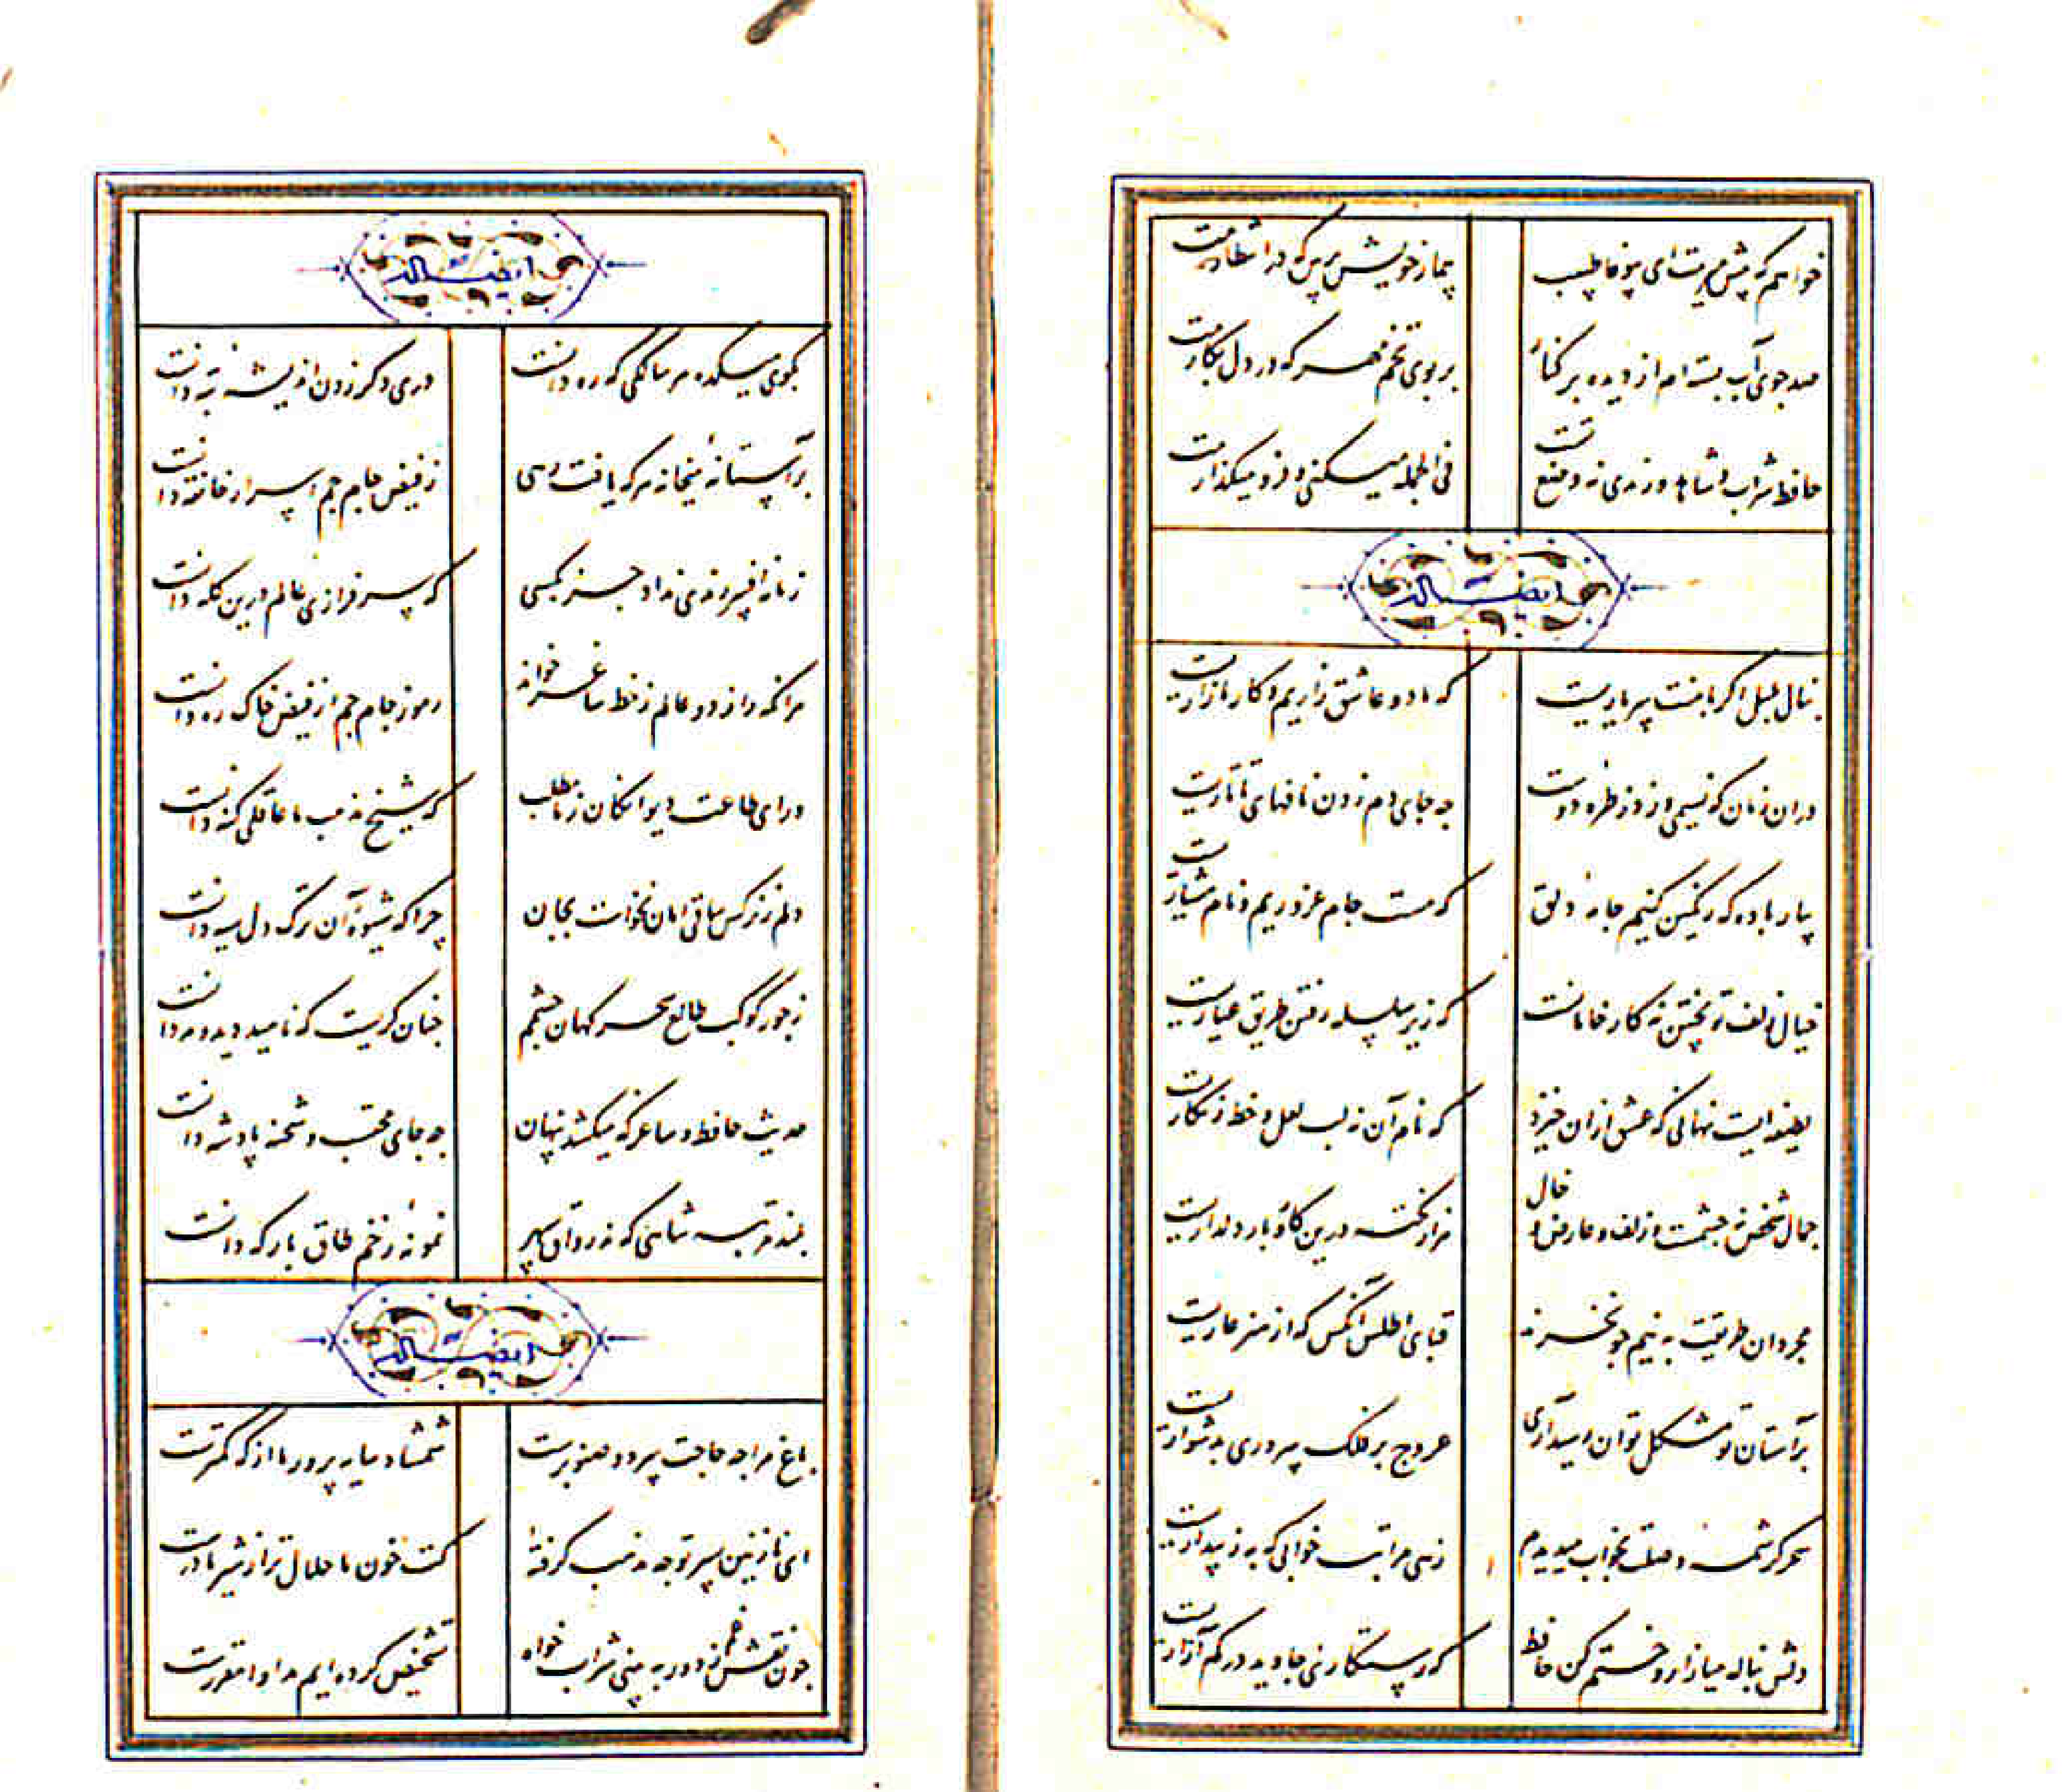 خواهم که پیش میرمت ای بیوفا طبیب
بیمار خویش پرس که در انتظارمت
صد جوی آب بسته ام از دیده بر کنار
بر بوی تخم مهر که در دل بکارمت
حافظ شراب و شاهد و رندی نه وضع تست
فی الجمله میکنی و فرو میگذارمت
ایضاً له
بنال بلبل اگر با منت سر یاریست
که ما دو عاشق زاریم و کار ما زاریست
دران زمان که نسیمی وزد ز طره دوست
چه جای دم زدن نافهای تاتاریست
بیار باده که رنگین کنیم جامه دلق
که مست جام غروریم و نام هشیاریست
خیال زلف تو پختن نه کار خامانست
که زیر سلسله رفتن طریق عیاریست
لطیفه ایست نهانی که عشق ازان خیزد
که نام آن نه لب لعل و خط زنگاریست
جمال شخص نه چشمست و زلف و عارض و خال
هزار نکته درین کار و بار دلداریست
مجردان طریقت به نیم جو نخرند
قبای اطلس آنکس که از هنر عاریست
بر آستان تو مشکل توان رسید آری
عروج بر فلک سروری بدشواریست
سحر کرشمه وصلت بخواب میدیدم
زهی مراتب خوابی که به ز بیداریست
دلش بناله میازار و ختم کن حافظ
که رستگاری جاوید در کم آزاریست
ایضاً له
بکوی میکده هر سالکی که ره دانست
دری دگر زدن اندیشه تبه دانست
بر آستانهٔ میخانه هر که یافت رهی
ز فیض جام جم اسرار خانقه دانست
زمانه افسر رندی نداد جز بکسی
که سرفرازی عالم درین کله دانست
هر آنکه راز دو عالم ز خط ساغر خواند
رموز جام جم از فیض خاک ره دانست
ورای طاعت دیوانگان ز ما مطلب
که شیخ مذهب ما عاقلی گنه دانست
دلم ز نرگس ساقی امان نخواست بجان
چرا که شیوهٔ آن ترک دل سیه دانست
ز جور کوکب طالع سحرگهان چشمم
چنان گریست که ناهید دید و مه دانست
حدیث حافظ و ساغر که میکشد پنهان
چه جای محتسب و شحنه پادشه دانست
بلند مرتبه شاهی که نه رواق سپهر
نمونهٔ ز خم طاق بارگه دانست
ایضاً له
باغ مرا چه حاجت سرو و صنوبرست
شمشاد سایه پرور ما از که کمترست
ای نازنین پسر تو چه مذهب گرفتهٔ
کت خون ما حلال تر از شیر مادرست
چون نقش غم ز دور ببینی شراب خواه
تشخیص کرده ایم مداوا مقررست